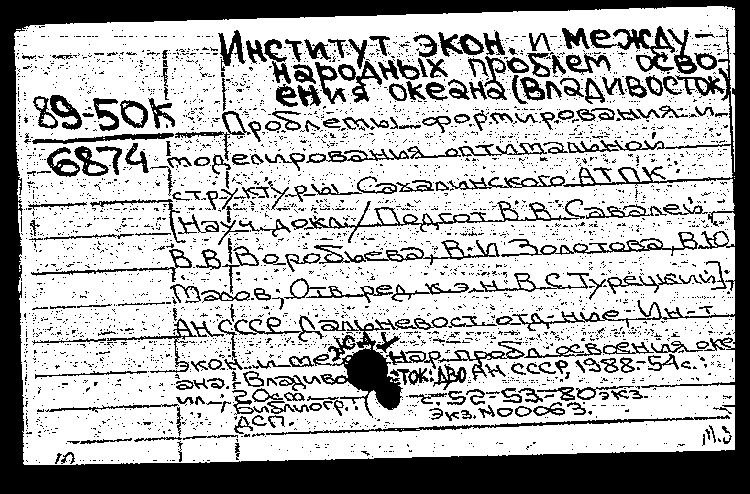 Институт экон. и между-
народных проблем осво-
ения океана (Владивосток).
89-50К
6874
Проблемы формирования и
моделирования оптимальной
структуры Сахалинского АТПК:
(Науч. докл./Подгот. В.В. Савалей,
В.В. Воробьева, В.И. Золотова, В.Ю.
Малов; Отв. ред. к.э.н. В.С. Турецкий];
АН СССР. Дальневост. отд-ние, Ин-т
экон. и нар. пробл. освоения оке
ана. - Владиво сток: ДВО АН СССР, 1988-54 с.:
ил.; 20 см.
Библиогр.: с. 52-53.-80 экз.
ДСП. Экз. N00063.